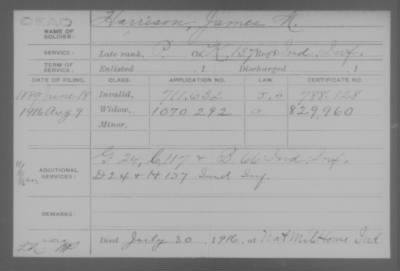 DEAD
NAME OF SOLDIER: Harrison, James N.
SERVICE: Late rank, P. Co. K, 157 Regt Ind. Inf.
TERM OF SERVICE: Enlisted 1 Discharged 1
DATE OF FILING. CLASS. APPLICATION NO. LAW. CERTIFICATE NO.
1889 June 18 Invalid, 711,622 788,128
1916 Aug 9 Widow, 1070,292 829,960
Minor,
ADDITIONAL SERVICES: G 24, C 117 & B 66 Ind Inf.
D 24 & H 137 Ind Inf
REMARKS:
Died July 20 1916, at Nat Mil Home Ind